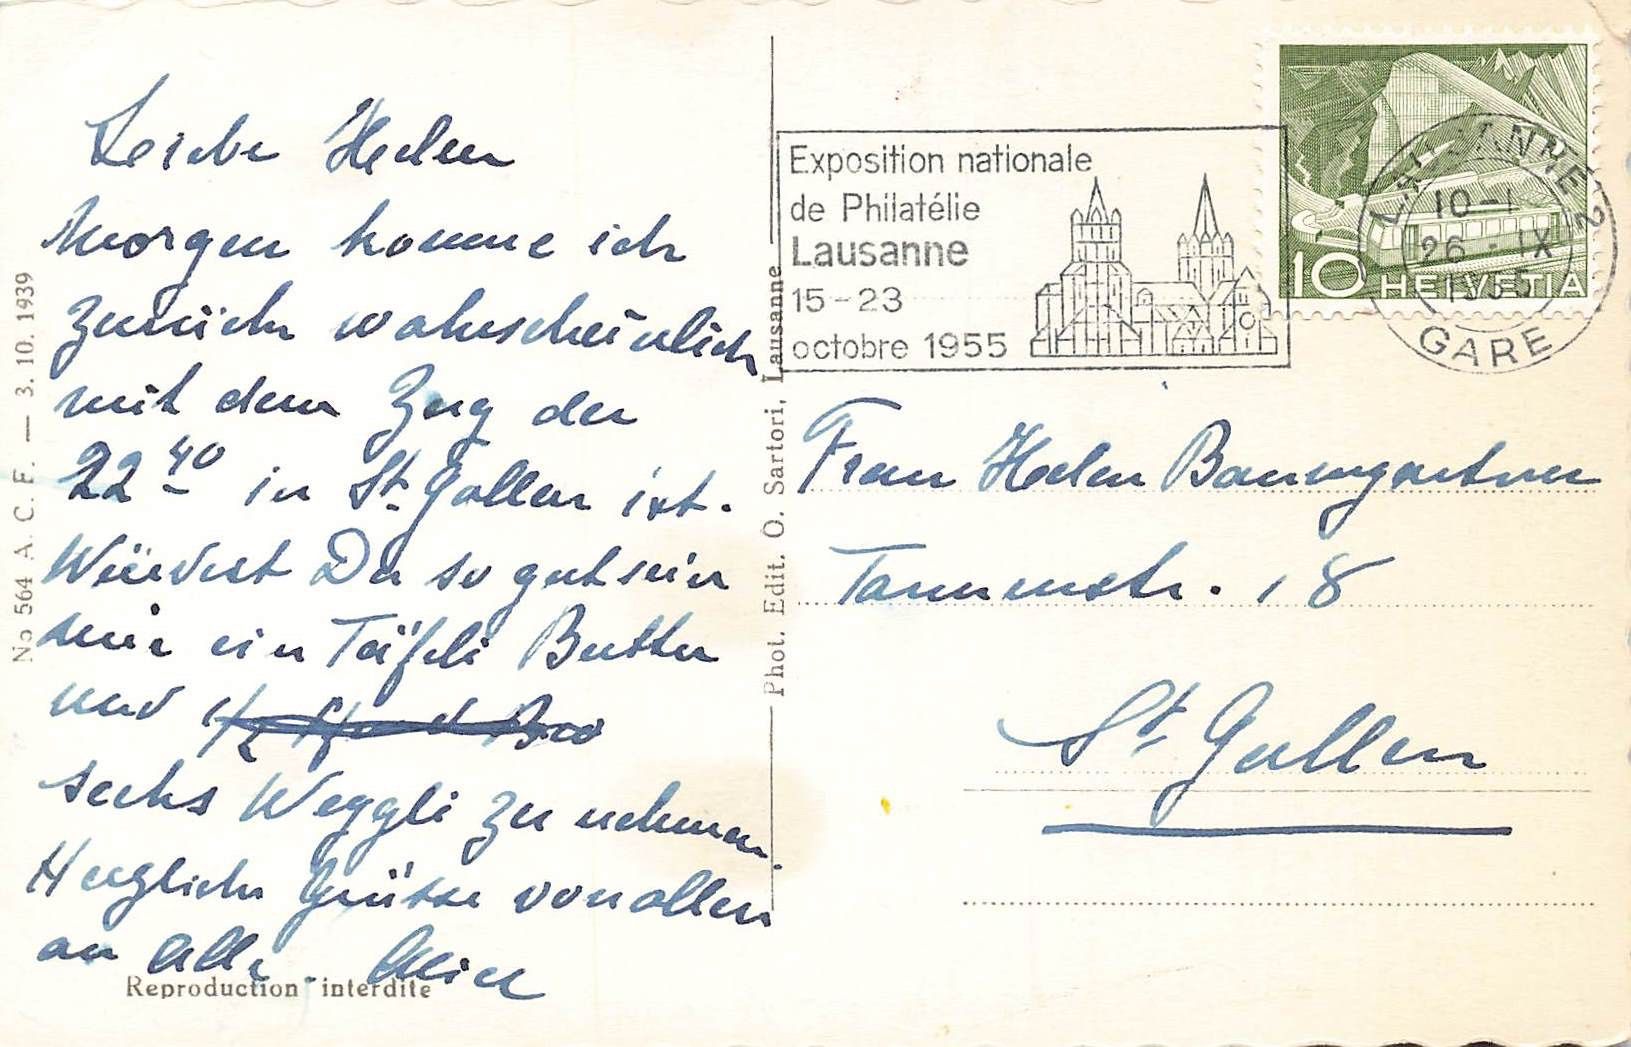 Liebe Helen
Morgen komme ich
zurück wahrscheinlich
mit dem Zug der
22 40 in St. Gallen ist.
Würdest Du so gut sein
mir ein Täfeli Butter
und 1/2
sechs Weggli zu nehmen.
Herzliche Grüsse von allen
an Alle
Reproduction interdite
No 564 A. C. F. — 3. 10. 1939
Phot. Edit. O. Sartori, Lausanne
Exposition nationale
de Philatélie
Lausanne
15-23
octobre 1955
10 HELVETIA
LAUSANNE 2
10-1
26 - IX
1955
GARE
Frau Helen Baumgartner
Tannenstr. 18
St. Gallen